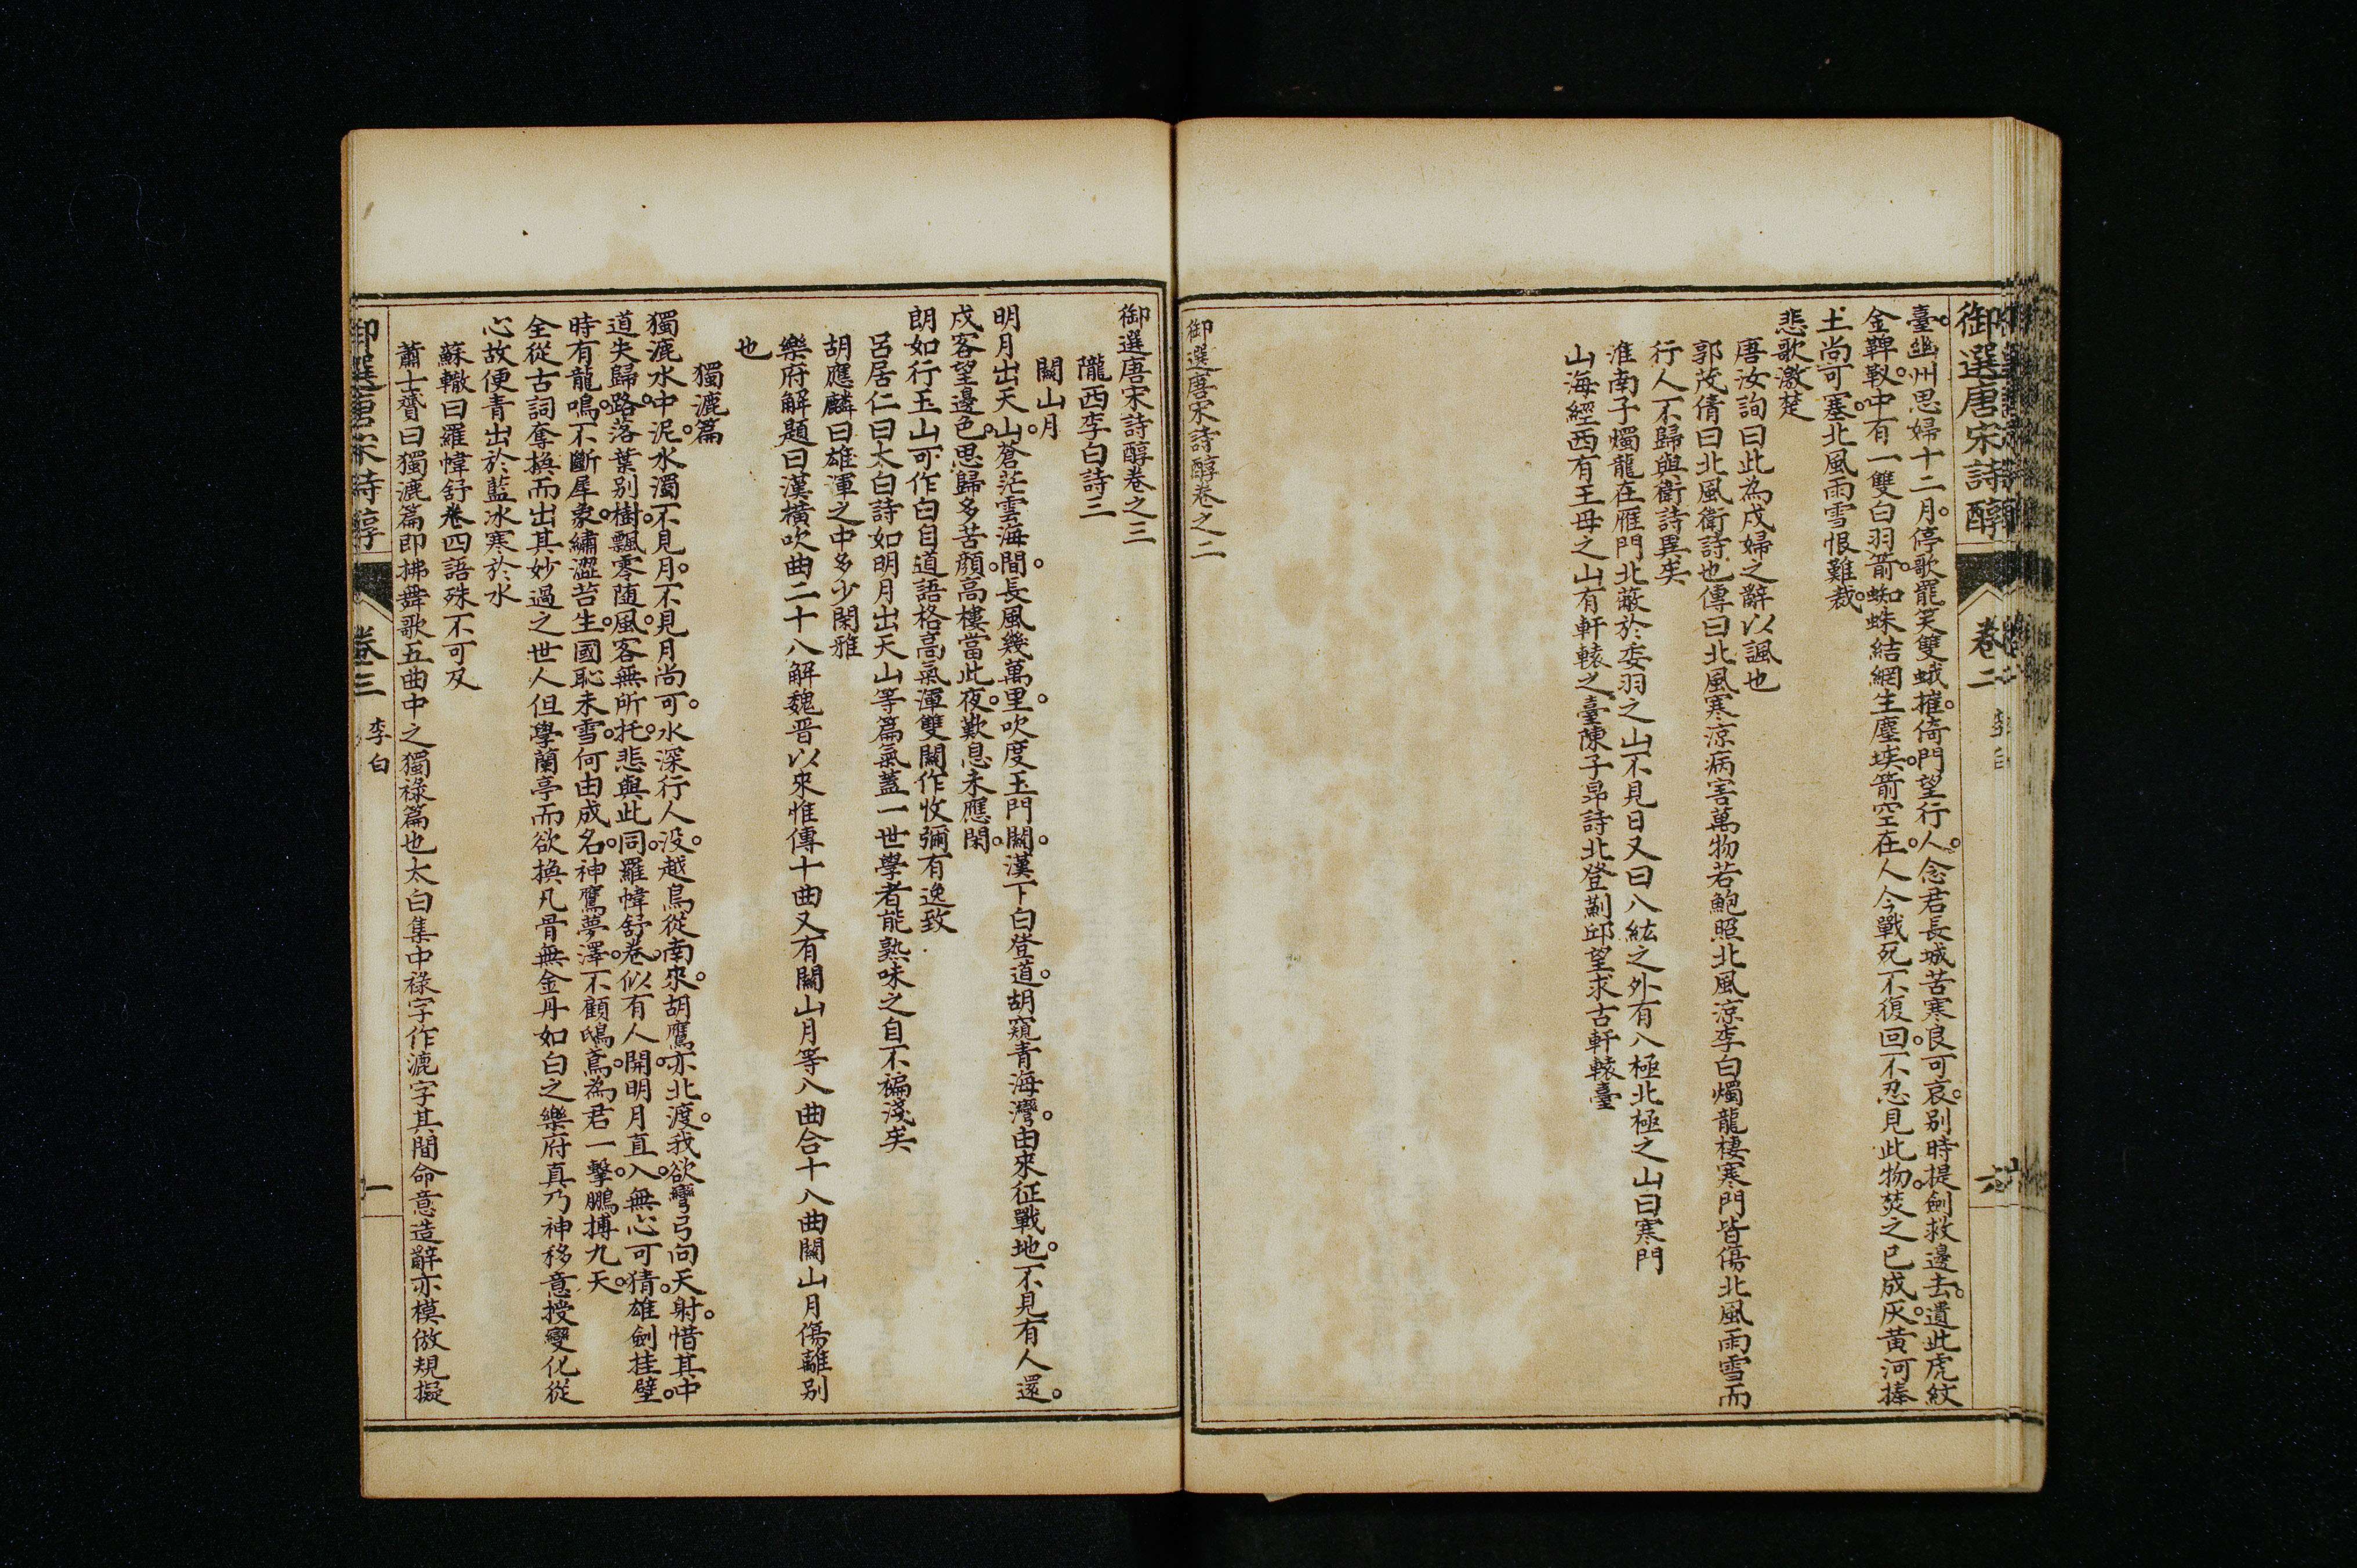 御選唐宋詩醇
卷二
李白
六
臺。幽州思婦十二月。停歌罷笑雙蛾摧。倚門望行人。念君長城苦寒良可哀。別時提劍救邊去。遺此虎紋
金鞞靫。中有一雙白羽箭。蜘蛛結網生塵埃。箭空在。人今戰死不復回。不忍見此物。焚之已成灰。黃河捧
土尚可塞。北風雨雪恨難裁。
悲歌激楚
唐汝詢曰此為戍婦之辭以諷也
郭茂倩曰北風衛詩也傳曰北風寒涼病害萬物若鮑照北風涼李白燭龍棲寒門皆傷北風雨雪而
行人不歸與衛詩異矣
淮南子燭龍在雁門北蔽於委羽之山不見日又曰八紘之外有八極北極之山曰寒門
山海經西有王母之山有軒轅之臺陳子昂詩北登薊邱望求古軒轅臺
御選唐宋詩醇卷之二
御選唐宋詩醇卷之三
隴西李白詩三
關山月
明月出天山。蒼茫雲海間。長風幾萬里。吹度玉門關。漢下白登道。胡窺青海灣。由來征戰地。不見有人還。
戍客望邊色。思歸多苦顏。高樓當此夜。歎息未應閑。
朗如行玉山可作白自道語格高氣渾雙關作收彌有逸致
呂居仁曰太白詩如明月出天山等篇氣蓋一世學者能熟味之自不褊淺矣
胡應麟曰雄渾之中多少閑雅
樂府解題曰漢橫吹曲二十八解魏晉以來惟傳十曲又有關山月等八曲合十八曲關山月傷離別
也
獨漉篇
獨漉水中泥。水濁不見月。不見月尚可。水深行人没。越鳥從南來。胡鷹亦北渡。我欲彎弓向天射。惜其中
道失歸路。落葉別樹。飄零隨風。客無所托。悲與此同。羅幃舒卷。似有人開。明月直入。無心可猜。雄劍挂壁。
時有龍鳴。不斷犀象。繡澀苔生。國恥未雪。何由成名。神鷹夢澤。不顧鴟鳶。為君一擊。鵬搏九天。
全從古詞奪換而出其妙過之世人但學蘭亭而欲換凡骨無金丹如白之樂府真乃神移意授變化從
心故便青出於藍冰寒於水
蘇轍曰羅幃舒卷四語殊不可及
蕭士贇曰獨漉篇即拂舞歌五曲中之獨祿篇也太白集中祿字作漉字其間命意造辭亦模倣規擬
御選唐宋詩醇
卷三
李白
一